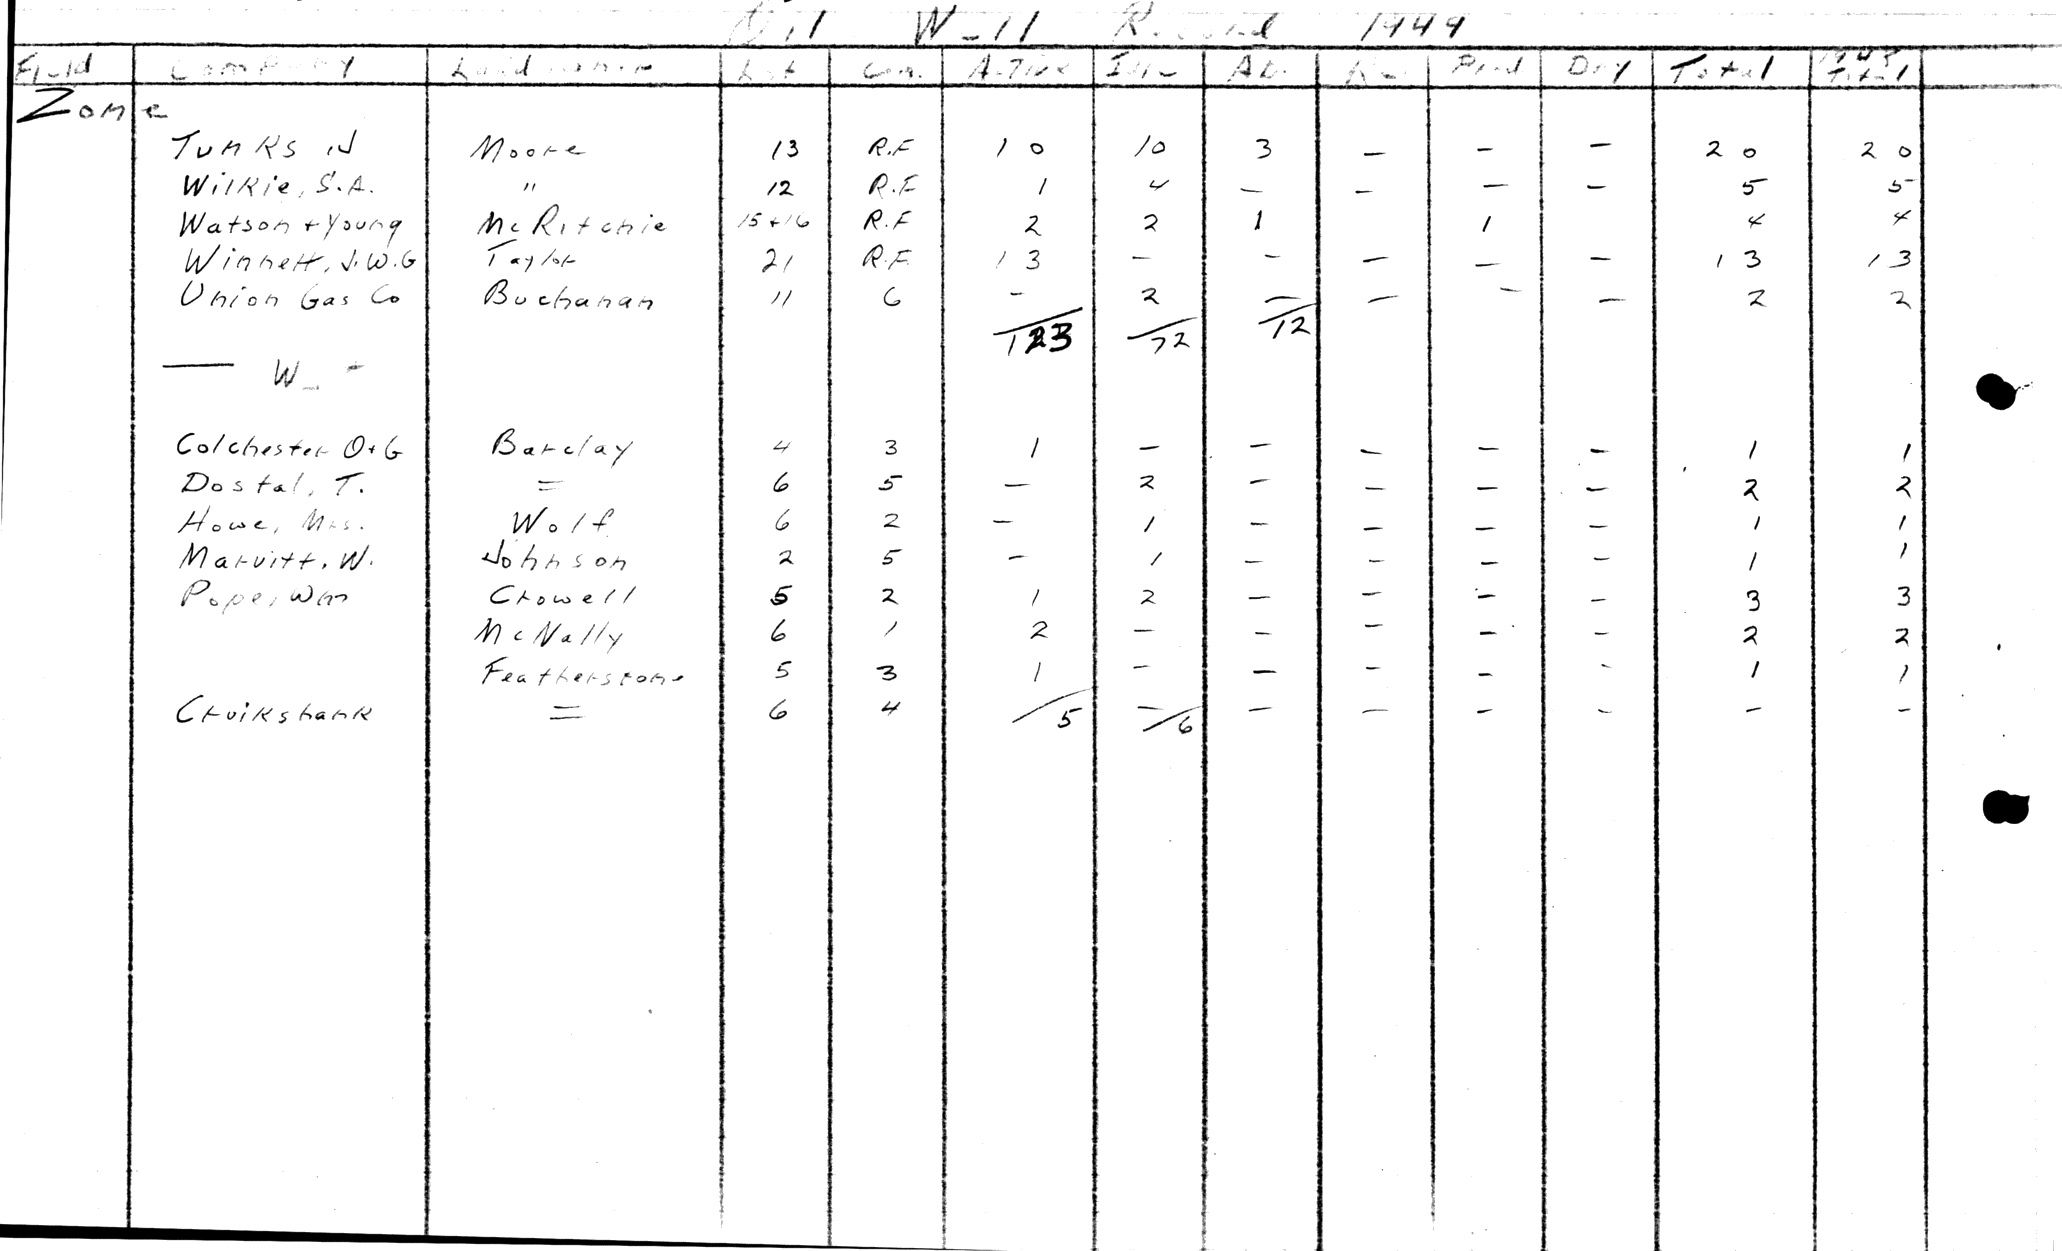 Oil Well Record 1949
Field Company Landowner Lot Con. Active Idle Ab. Prod Dry Total 1948 Total
Zone
Tunks W Moore 13 R.F 10 10 3 — — — 20 20
Wilkie, S.A. " 12 R.F 1 4 — — — — 5 5
Watson + Young McRitchie 15+16 R.F 2 2 1 1 4 4
Winnett, J.W.G Taylor 21 R.F. 13 — — — — — 13 13
Union Gas Co Buchanan 11 6 — 2 — — — — 2 2
123 72 12
— West
Colchester O+G Barclay 4 3 1 — — — — — 1 1
Dostal, T. = 6 5 — 2 — — — — 2 2
Howe, Mrs. Wolf 6 2 — 1 — — — — 1 1
Maruitt, W. Johnson 2 5 — 1 — — — — 1 1
Pope, Wm Crowell 5 2 1 2 — — — — 3 3
McNally 6 1 2 — — — — — 2 2
Featherstone 5 3 1 — — — — — 1 1
Cruikshank = 6 4 — — — — — —
5 6